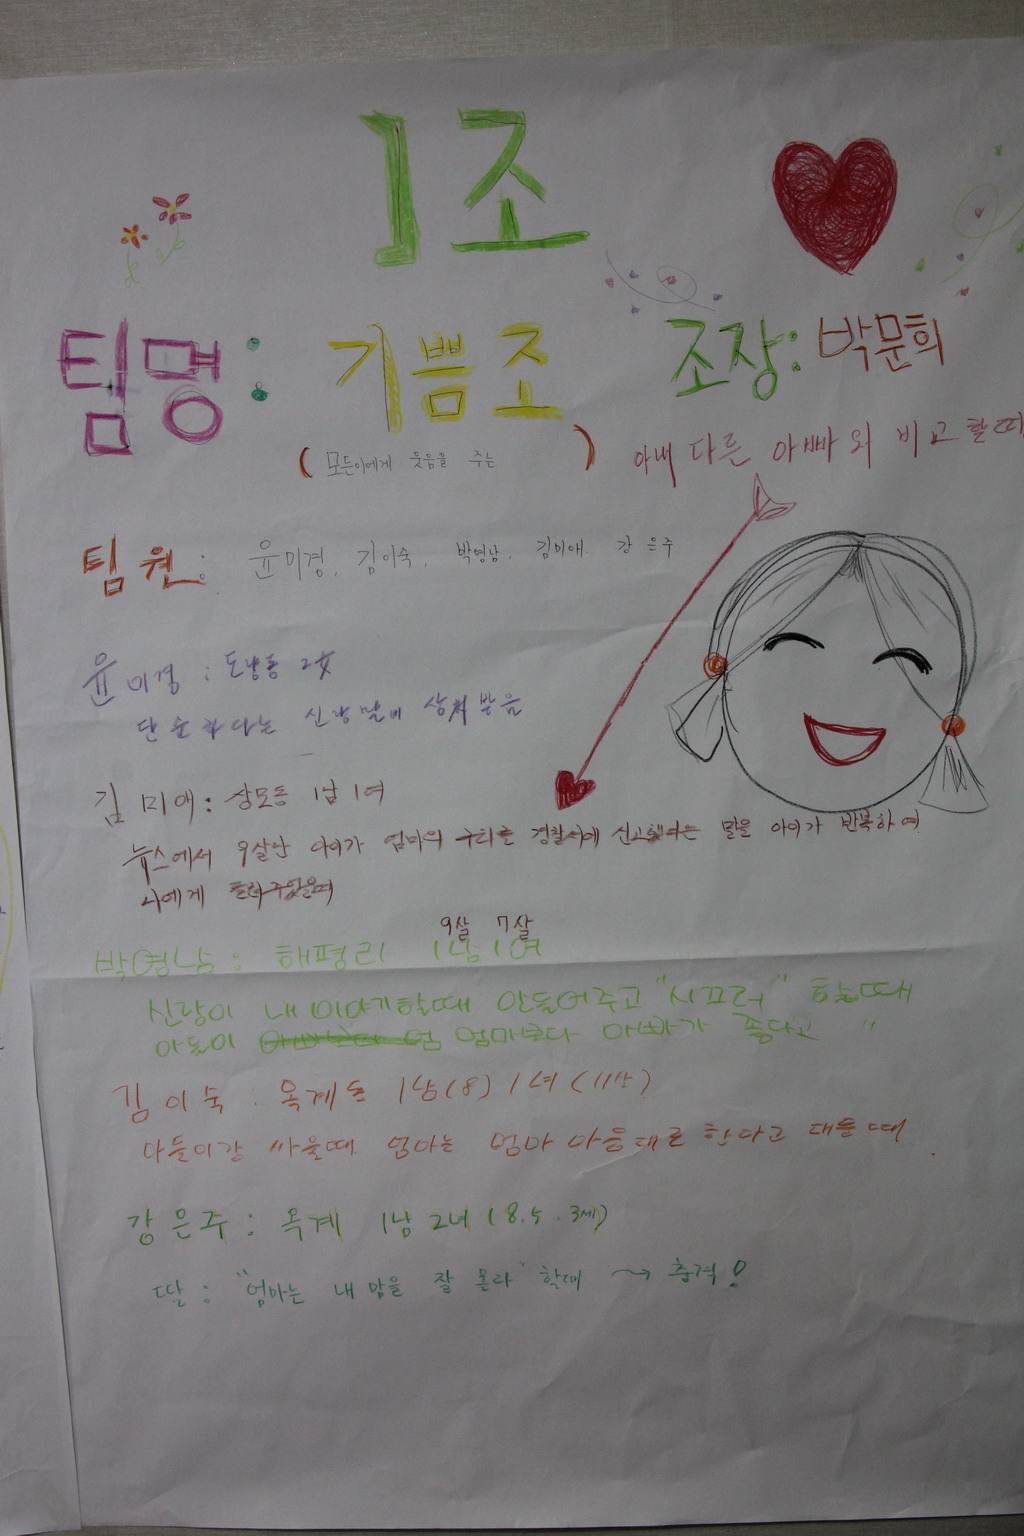 1조
팀명: 기쁨조 조장: 박문희
(모든이에게 웃음을 주는)
아내 다른 아빠와 비교할때
팀원: 윤미경, 김이숙, 박영남, 김미애. 강은주
윤미경: 도량동 2女
단순하다는 신랑말에 상처받음
김미애: 상모동 1남 1여
뉴스에서 9살난 아이가 엄마의 경찰서에 신고했다는 말을 아이가 반복하여
나에게
9살 7살
박영남: 해평리 1남 1여
신랑이 내 이야기할때 안들어주고 "시끄러" 할때
아들이 엄마보다 아빠가 좋다고 "
김이숙: 옥계동 1남(8) 1녀(11살)
아들이랑 싸울때 엄마는 엄마 마음대로 한다고 대들때
강은주: 옥계 1남 2녀 (8. 5. 3세)
딸: "엄마는 내 맘을 잘 몰라" 할때 → 충격!